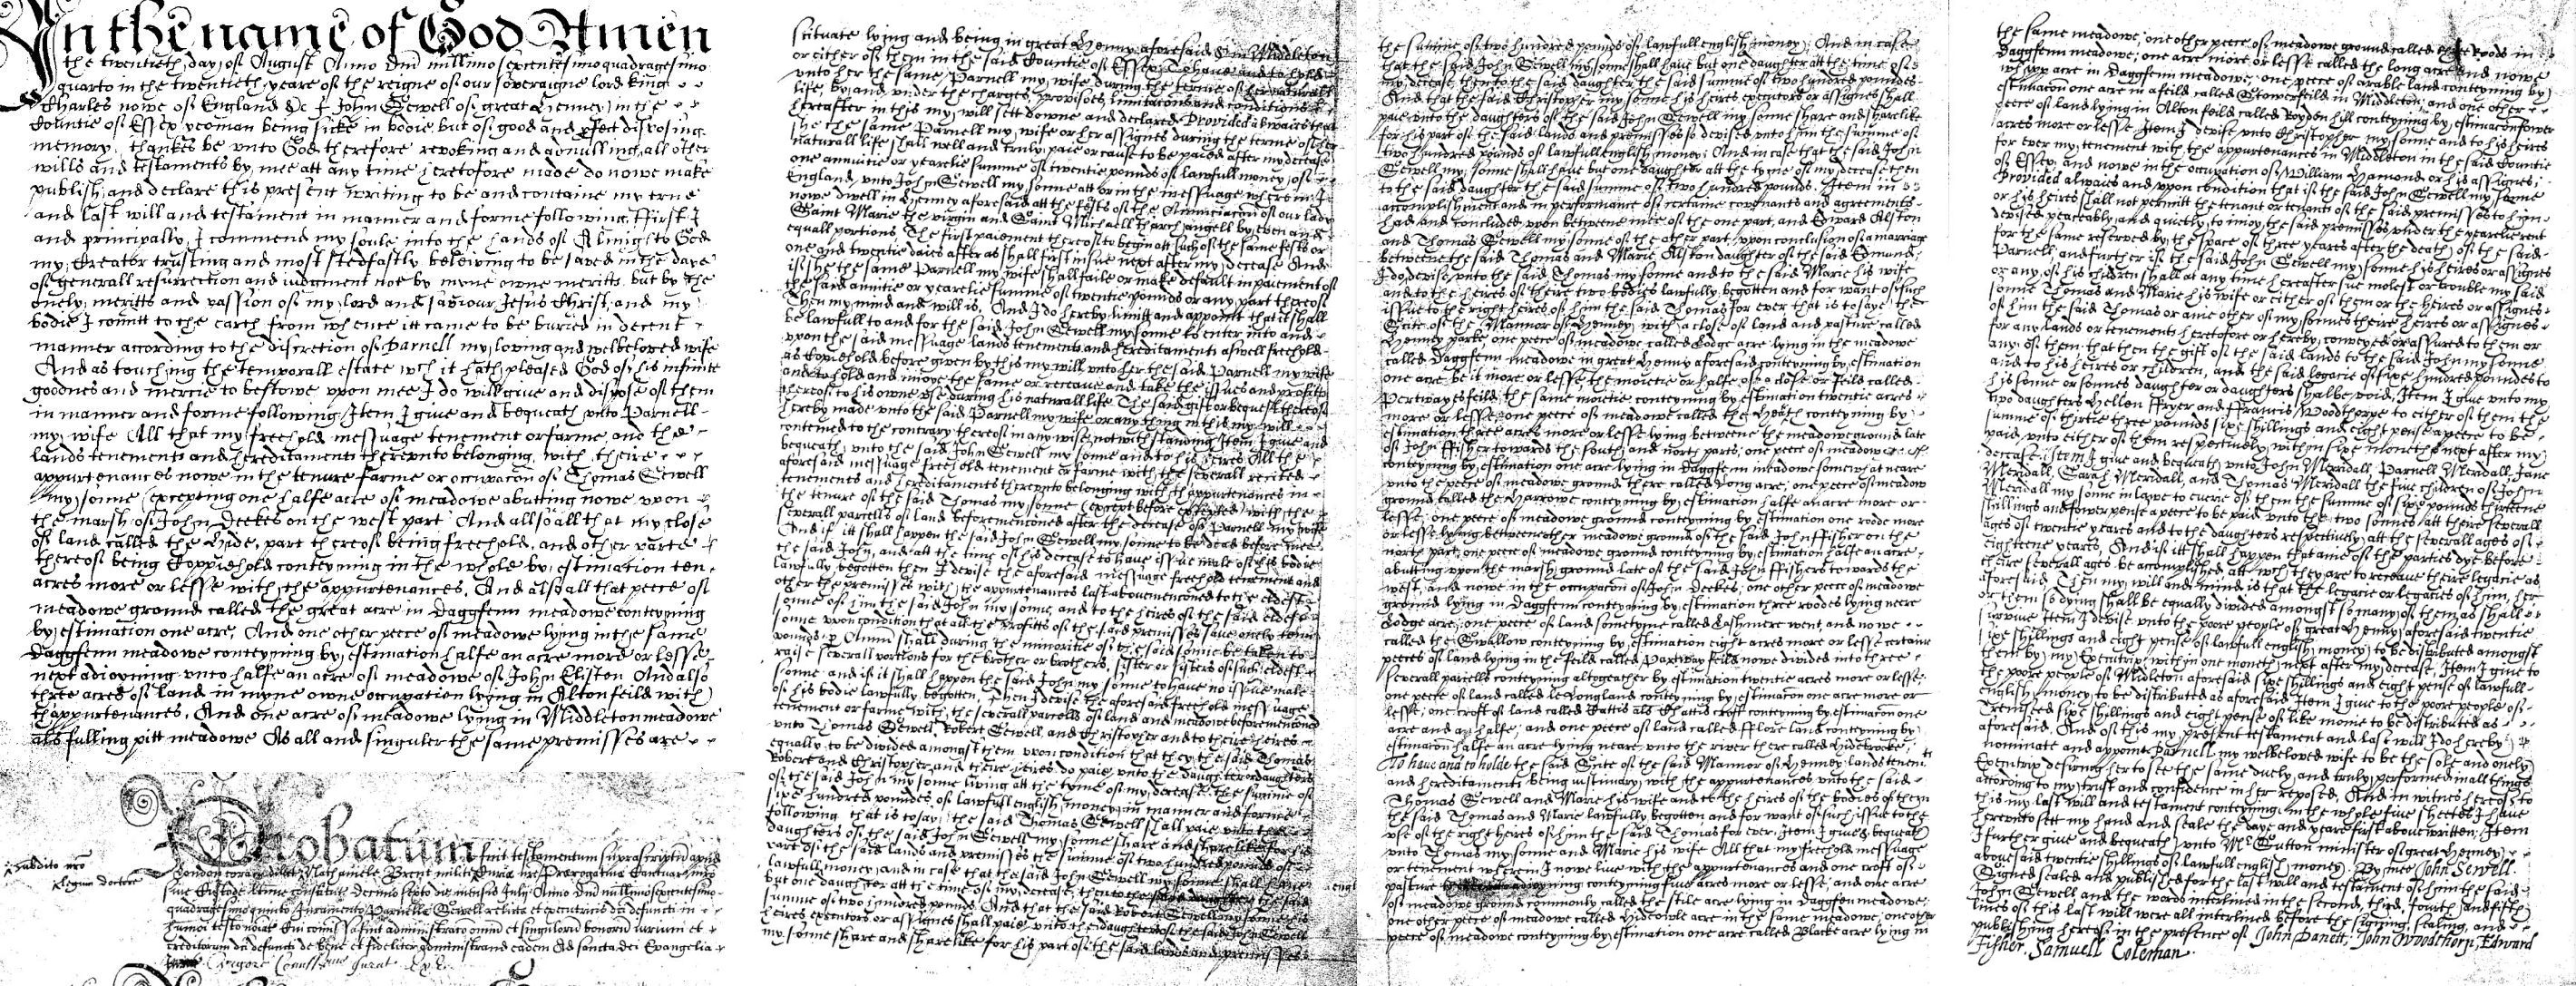 In the name of God Amen
the twentieth day of August Anno Dni millimo sexcentesimo quadragesimo
quarto in the twentieth yeare of the reigne of our soveraigne lord king
Charles nowe of England &c I John Sewell of great Henney in the
Countie of Essex yeoman being sicke in bodie but of good and pfect disposing
memory thankes be unto God therefore revoking and adnulling all other
wills and testaments by mee att any time heretofore made do nowe make
publish and declare this present writing to be and containe my true
and last will and testament in manner and forme following. ffirst I
and principally I commend my soule into the hands of Almighty God
my Creator trusting and most stedfastly beleiving to be saved in the daye
of generall resurrection and iudgment not by myne owne meritts but by the
onely meritts and passion of my lord and saviour Jesus Christ, and my
bodie I comitt to the earth from whence itt came to be buried in decent
manner according to the discretion of Parnell my loving and welbeloved wife
And as touching the temporall estate wch it hath pleased God of his infinite
goodnes and mercie to bestowe upon mee I do will give and dispose of them
in manner and forme following Item I give and bequeath unto Parnell
my wife All that my freehold messuage tenement or farme and the
lands tenements and hereditaments thereunto belonging with theire
appurtenances nowe in the tenure farme or occupacon of Thomas Sewell
my sonne (excepting one halfe acre of meadowe abutting nowe upon
the marsh of John Deekes on the west part And allso all that my close
of land called the Hide, part thereof being freehold, and other parte
thereof being Coppiehold conteyning in the whole by estimation ten
acres more or lesse with the appurtenances. And also all that peece of
meadowe ground called the great acre in Daggfenn meadowe conteyning
by estimation one acre, And one other peece of meadowe lying in the same
Daggfenn meadowe conteyning by estimation halfe an acre more or lesse
next adioyning unto halfe an acre of meadowe of John Eliston And also
three acres of land in myne owne occupation lying in Altonfeild with
thappurtenances, And one acre of meadowe lying in Middleton meadowe
als fulling pitt meadowe As all and singuler the same premisses are
Probatum fuit testamentum suprascriptum apud
London coram Nathaniele Brent milite Curiae Prerogativae Cantuariensis
decimo mensis July Anno Dni millimo sexcentesimo
quadragesimo quinto Juramento Parnelle Sewell relicte et executricis dci defuncti in
humoi testo noiat Cui comissa fuit administraco omniu et singuloru bonoru iuriu et
creditorum dci defuncti de bene et fideliter administrand eadem Ad sancta dei Evangelia
vigore Comissionis Jurat
scituate lying and being in great Henny aforesaid & in Middleton
or either of them in the said Countie of Essex To have and to hold
unto her the same Parnell my wife during the terme of her naturall
life, by and under the charges, provisoes, limitacons and conditions
hereafter in this my will sett downe and declared Provided alwaies that
she the same Parnell my wife or her assignes during the terme of her
naturall life shall well and truly paie or cause to be paied after my decease
one annuitie or yearelie summe of twentie pounds of lawfull money of
England unto John Sewell my sonne att or in the messuage wherein I
nowe dwell in Henney aforesaid att the fests of the Annunciacon of our lady
Saint Marie the virgin and Saint Michaell tharchangell by even and
equall portions The first paiement thereof to begin att such of the same fests or
one and twentie daies after as shall first insue next after my decease And
if she the same Parnell my wife shall faile or make default in paiement of
the said annuitie or yearelie summe of twentie pounds or any part thereof
Then my mind and will is, And I do hereby limitt and appoint that it shall
be lawfull to and for the said John Sewell my sonne to enter into and
upon the said messuage lands tenements and hereditaments aswell freehold
as Copiehold before given by this my will unto her the said Parnell my wife
and to hold and inioye the same or receave and take the issues and profitts
thereof to his owne use during his naturall life. The said gift or bequest thereof
hereby made unto the said Parnell my wife or any thing in this my will
conteined to the contrary thereof in any wise notwithstanding Item I give and
bequeath unto the said John Sewell my sonne and to his heires All the
aforesaid messuage freehold tenement or farme with the severall recited
tenements and hereditaments thereunto belonging with thappurtenances in
the tenure of the said Thomas my sonne (except before excepted) with the
severall parcells of land before menconed after the decease of Parnell my wife
And if itt shall happen the said John Sewell my sonne to be dead before mee
the said John, and att the time of his decease to have issue male of his bodie
lawfully begotten then I devise the aforesaid messuage freehold tenement and
other the premisses with the appurtenances last abovemenconed to the eldest
sonne of him the said John my sonne, and to the heires of the said eldest
sonne upon condition that all the profitts of the said premisses save onely tenn
pounds p Annu shall during the minoritie of the said sonne be taken to
raise severall portions for the brother or brothers, sister or sisters of such eldest
sonne and if it shall happen the said John my sonne to have no issue male
of his bodie lawfully begotten, Then I devise the aforesaid freehold messuage
tenement or farme with the severall parcells of land and meadowe before mencond
unto Thomas Sewell, Robert Sewell, and Christopher and to theire heires
equally to be divided amongst them upon condition that they the said Thomas
Robert and Christopher and theire heires do paie unto the daughter or daughters
of the said John my sonne living att the tyme of my decease the summe of
sixe hundred poundes of lawfull english money in manner and forme
following that is to say, the said Thomas Sewell shall paie unto the
daughters of the said John Sewell my sonne share and share like for his
part of the said lands and premisses the summe of two hundred pounds of
lawfull money and in case that the said John Sewell my sonne shall have
but one daughter att the time of my decease, then to the said daughter the said
summe of two hundred pounds. And that the said Robert Sewell my sonne his
heires executors or assignes shall paie unto the daughters of the said John Sewell
my sonne share and share like for his part of the said lands and premisses
the summe of two hundred pounds of lawfull english money; And in case
that the said John Sewell my sonne shall have but one daughter att the time of
my decease, then to the said daughter the said summe of two hundred pounds
And that the said Christopher my sonne his heires executors or assignes shall
paie unto the daughters of the said John Sewell my sonne share and share like
for his part of the said lands and premisses so devised unto him the summe of
two hundred pounds of lawfull english money; And in case that the said John
Sewell my sonne shall have but one daughter att the tyme of my decease then
to the said daughter the said summe of two hundred pounds. Item in
accomplishment and in performance of certaine covenants and agreements
had and concluded upon betweene mee of the one part, and Edward Alston
and Thomas Sewell my sonne of the other part, upon conclusion of a marriage
betweene the said Thomas and Marie Alston daughter of the said Edmund
I do devise unto the said Thomas my sonne and to the said Marie his wife
and to the heires of theire two bodies lawfully begotten and for want of such
issue to the right heires of him the said Thomas for ever that is to saye the
Scite of the Mannor of Henney with a close of land and pasture called
Henney parke, one peece of meadowe called Lodge acre lying in the meadowe
called Daggfenn meadowe in great Henny aforesaid conteyning by estimation
one acre be it more or lesse, the moietie or halfe of a close or feild called
Pertwayes feild, the same moietie conteyning by estimation twentie acres
more or lesse, one peece of meadowe called the conteyning by
estimation three acres more or lesse lying betweene the meadowe ground late
of John ffisher towards the south and north parts, one peece of meadowe
conteyning by estimation one acre lying in Daggfenn meadowe somewhat neare
unto the peece of meadowe ground there called Long acre, one peece of meadow
ground called the Harrowe conteyning by estimation halfe an acre more or
lesse, one peece of meadowe ground conteyning by estimation one roode more
or lesse lying betweene the meadowe ground of the said John ffisher on the
north part, one peece of meadowe ground conteyning by estimation halfe an acre
abutting upon the marsh ground late of the said John ffishers towards the
west, and nowe in the occupacon of John Deekes, one other peece of meadowe
ground lying in Daggfenn conteyning by estimation three roodes lying neere
Lodge acre, one peece of land sometyme called Cashmere went, and nowe
called the Swallow conteyning by estimation eight acres more or lesse certaine
peeces of land lying in the feild called Partway feild nowe divided into three
severall parcells conteyning altogeather by estimation twentie acres more or lesse
one peece of land called le Longland conteyning by estimacon one acre more or
lesse, one croft of land called Battis als Chattis croft conteyning by estimacon one
acre and a halfe, and one peece of land called fflore land conteyning by
estimacon halfe an acre lying neare unto the river there called Hidebrooke.
To have and to holde the said Scite of the said Mannor of Henney lands tenemts
and hereditaments being customary with the appurtenances unto the said
Thomas Sewell and Marie his wife and to the heires of the bodies of them
the said Thomas and Marie lawfully begotten and for want of such issue to the
use of the right heires of him the said Thomas for ever. Item I give & bequeath
unto Thomas my sonne and Marie his wife All that my freehold messuage
or tenement wherein I nowe live with the appurtenances and one croft of
pasture conteyning five acres more or lesse, and one acre
of meadowe ground commonly called the stile acre lying in Daggfen meadowe
one other peece of meadowe called Hidecowle acre in the same meadowe, one other
peece of meadowe conteyning by estimation one acre called Blacke acre lying in
the same meadowe, one other peece of meadowe ground called three Roods in
Daggfenn meadowe, one acre more or lesse called the long acre and nowe
whipp acre in Daggfenn meadowe, one peece of arable land conteyning by
estimacon one acre in a feild called Stowerfeild in Middleton, and one other
peece of land lying in Alton feild called Roydon hill conteyning by estimacon fower
acres more or lesse Item I devise unto Christopher my sonne and to his heires
for ever my tenement with the appurtenances in Middleton in the said Countie
of Essex, and nowe in the occupation of William Hamond or his assignes;
Provided alwaies and upon condition that if the said John Sewell my sonne
or his heires shall not permitt the tenant or tenants of the said premisses to him
devised peaceably and quietly to inioy the said premisses under the yearelie rent
for the same reserved by the space of three yeares after the death of the said
Parnell, and further if the said John Sewell my sonne his heires or assignes
or any of his children shall at any time hereafter sue molest or trouble my said
sonne Thomas and Marie his wife or either of them or the heires or assignes
of him the said Thomas or anie other of my sonnes theire heires or assignes
for any lands or tenements heretofore or hereby conveyed or assured to them or
any of them that then the gift of the said lands to the said John my sonne
and to his heires or children, and the said legacie of sixe hundred poundes to
his sonne or sonnes daughter or daughters shalbe void, Item I give unto my
two daughters Hellen ffryer and ffrancis Woodthorpe to either of them the
summe of thirtie three pounds sixe shillings and eight pense apeece to be
paid unto either of them respectively within sixe moneths next after my
decease. Item I give and bequeath unto John Meridall, Parnell Meridall, Jane
Meridall, Sarah Meridall, and Thomas Meridall the five children of John
Meridall my sonne in lawe to everie of them the summe of sixe pounds thirteene
shillings and fower pense a peece to be paid unto the two sonnes att their severall
ages of twentie yeares and to the daughters respectively att the severall ages of
eighteene yeares, And if itt shall happen that anie of the parties dye before
theire severall ages be accomplished att wch they are to receave theire legacie as
aforesaid. Then my will and mind is that the legacie or legacies of him, her
or them so dying shall be equally divided amongst so many of them as shall
survive Item I devise unto the poore people of great Henny aforesaid twentie
sixe shillings and eight pense of lawfull english money to be distributed amongst
them by my Executrix within one moneth next after my decease, Item I give to
the poore people of Midleton aforesaid sixe shillings and eight pense of lawfull
english money to be distributed as aforesaid Item I give to the poore people of
Twinsteed sixe shillings and eight pense of like monie to be distributed as
aforesaid. And of this my present testament and last will I do hereby
nominate and appointe Parnell my welbeloved wife to be the sole and onely
Executrix desiring her to see the same duely and truly performed in all things
according to my trust and confidence in her reposed. And in witnes hereof to
this my last will and testament conteyning in the whole five sheetes I have
hereunto sett my hand and seale the daye and yeare first above written; Item
I further give and bequeath unto Mr Sutton minister of great Henney
abovesaid twentie shillings of lawfull english money. By mee John Sewell.
Signed sealed and published for the last will and testament of him the said
John Sewell and the words interlined in the second, third, fourth and fifth
lines of this last will were all interlined before the signing, sealing, and
publishing hereof in the presence of John Danett, John Woodthorp, Edward
Fisher. Samuell Coleman.